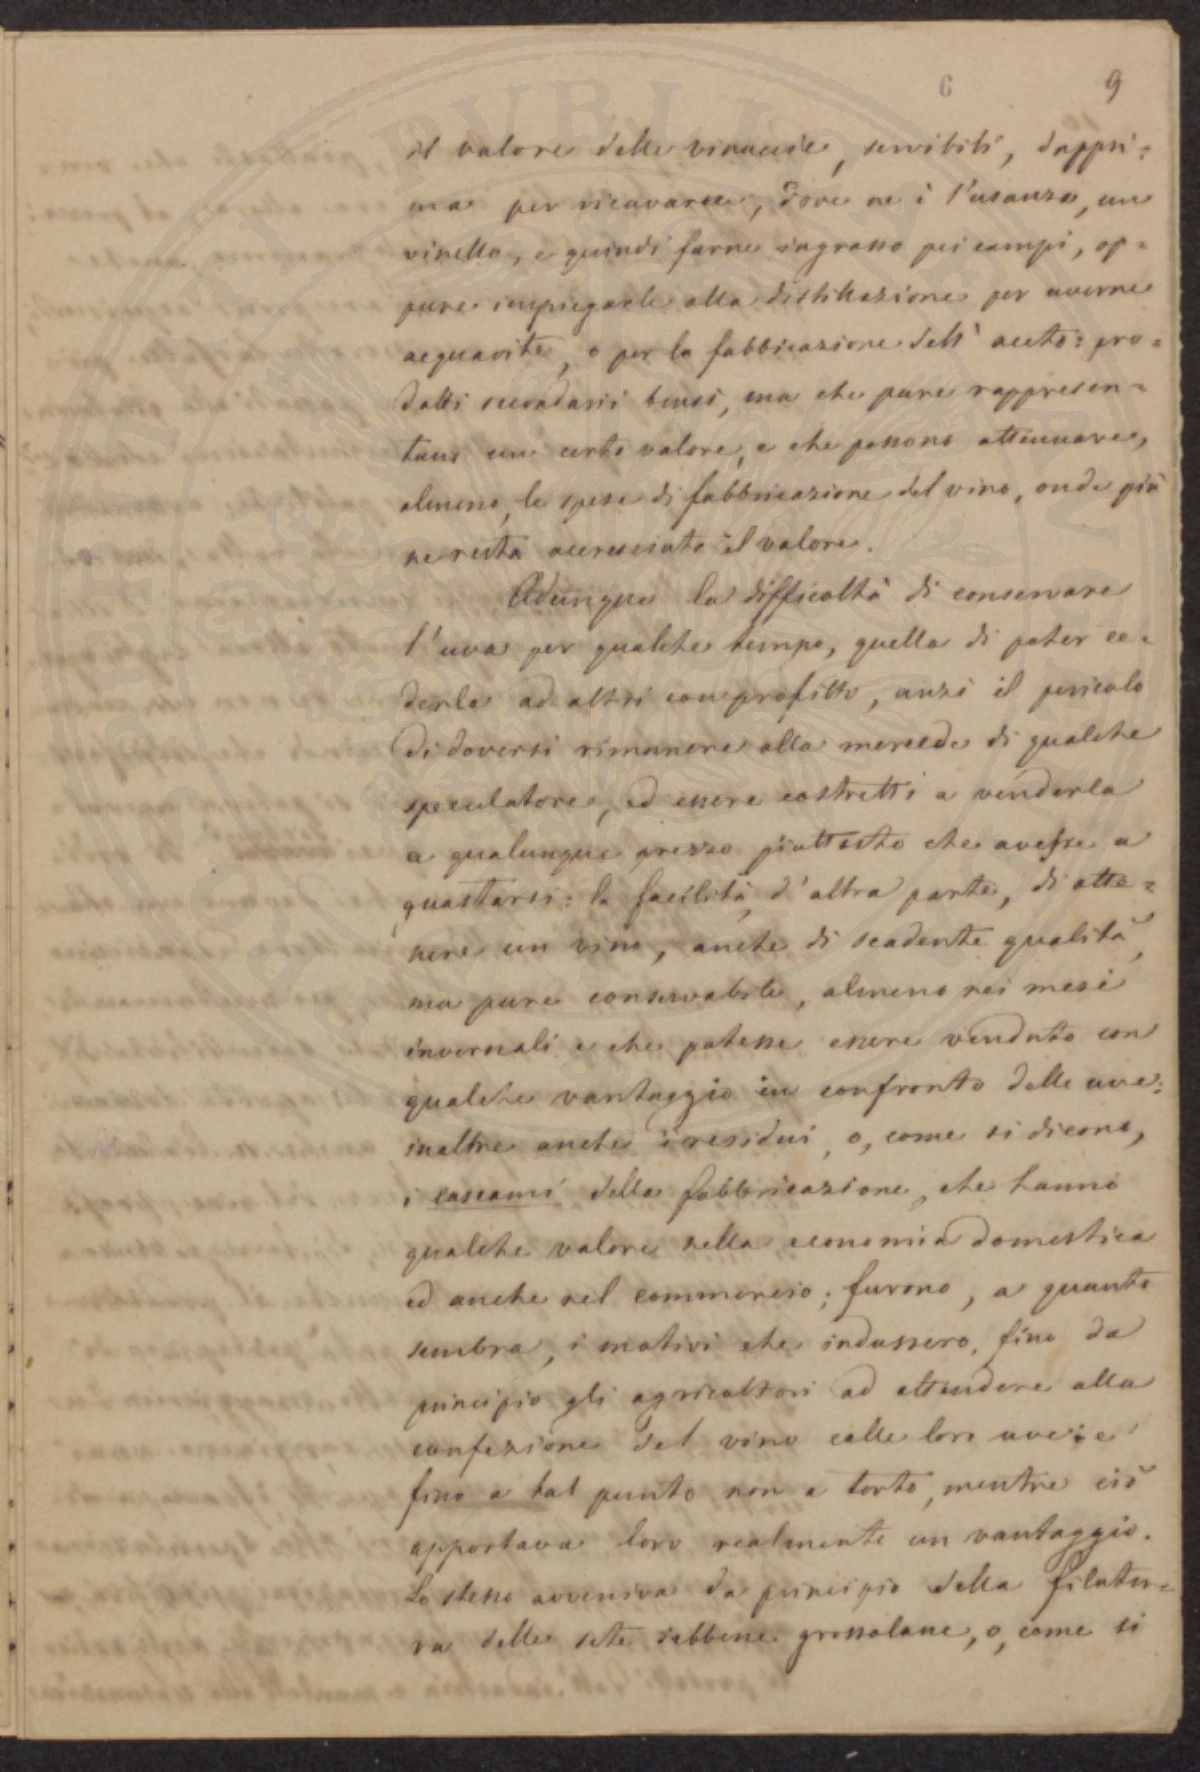 6 9
il valore delle vinaccie, servibili, dappri=
ma per ricavarne, dove ne è l'usanza, un
vinello, e quindi farne ingrasso pei campi, op=
pure impiegarle alla distillazione per averne
acquavite, o per la fabbricazione dell' aceto: pro=
dotti secondarii bensì, ma che pure rappresen=
tano un certo valore, e che possono attenuare,
almeno, le spese di fabbricazione del vino, onde più
ne resta accresciuto il valore.
Adunque la difficoltà di conservare
l'uva per qualche tempo, quella di poter ce=
derla ad altri con profitto, anzi il pericolo
di doversi rimanere alla mercede di qualche
speculatore, ed essere costretti a venderla
a qualunque prezzo piuttosto che avesse a
guastarsi: la facilità, d'altra parte, di otte=
nere un vino, anche di scadente qualità,
ma pure conservabile, almeno nei mesi
invernali e che potesse essere venduto con
qualche vantaggio in confronto delle uve:
inoltre anche i residui, o, come si dicono,
i cascami della fabbricazione, che hanno
qualche valore nella economia domestica
ed anche nel commercio; furono, a quanto
sembra, i motivi che indussero, fino da
principio gli agricoltori ad attendere alla
confezione del vino colle loro uve: e
fino a tal punto non a torto, mentre ciò
apportava loro realmente un vantaggio.
Lo stesso avveniva da principio della filatu=
ra delle sete sebbene grossolane, o, come si